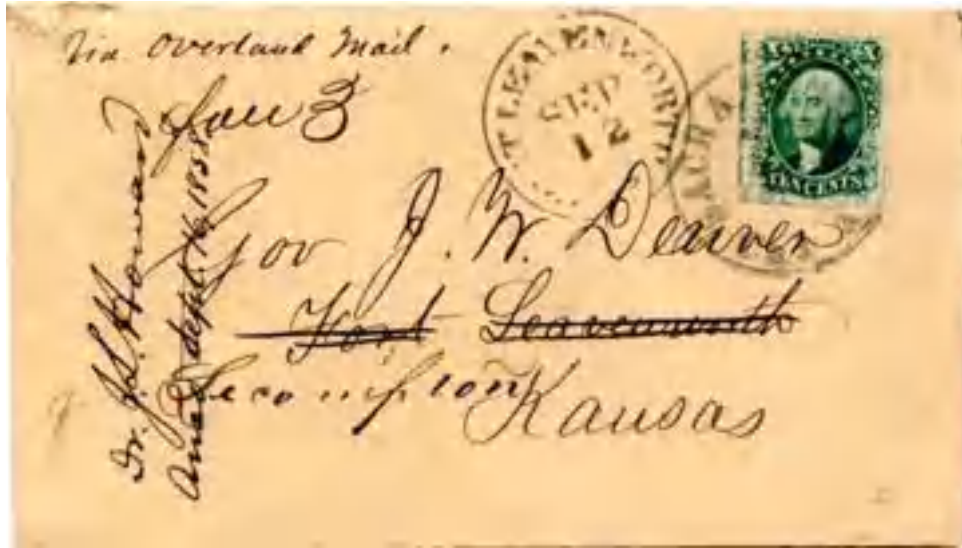 Via Overland Mail.
T LEAVENWORT
SEP
12
TEN CENTS
Gov J. W. Denver
Fort Leavenworth
Lecompton
Kansas
Dr. J. S. Howard
Ansd Sept. 16, 1858